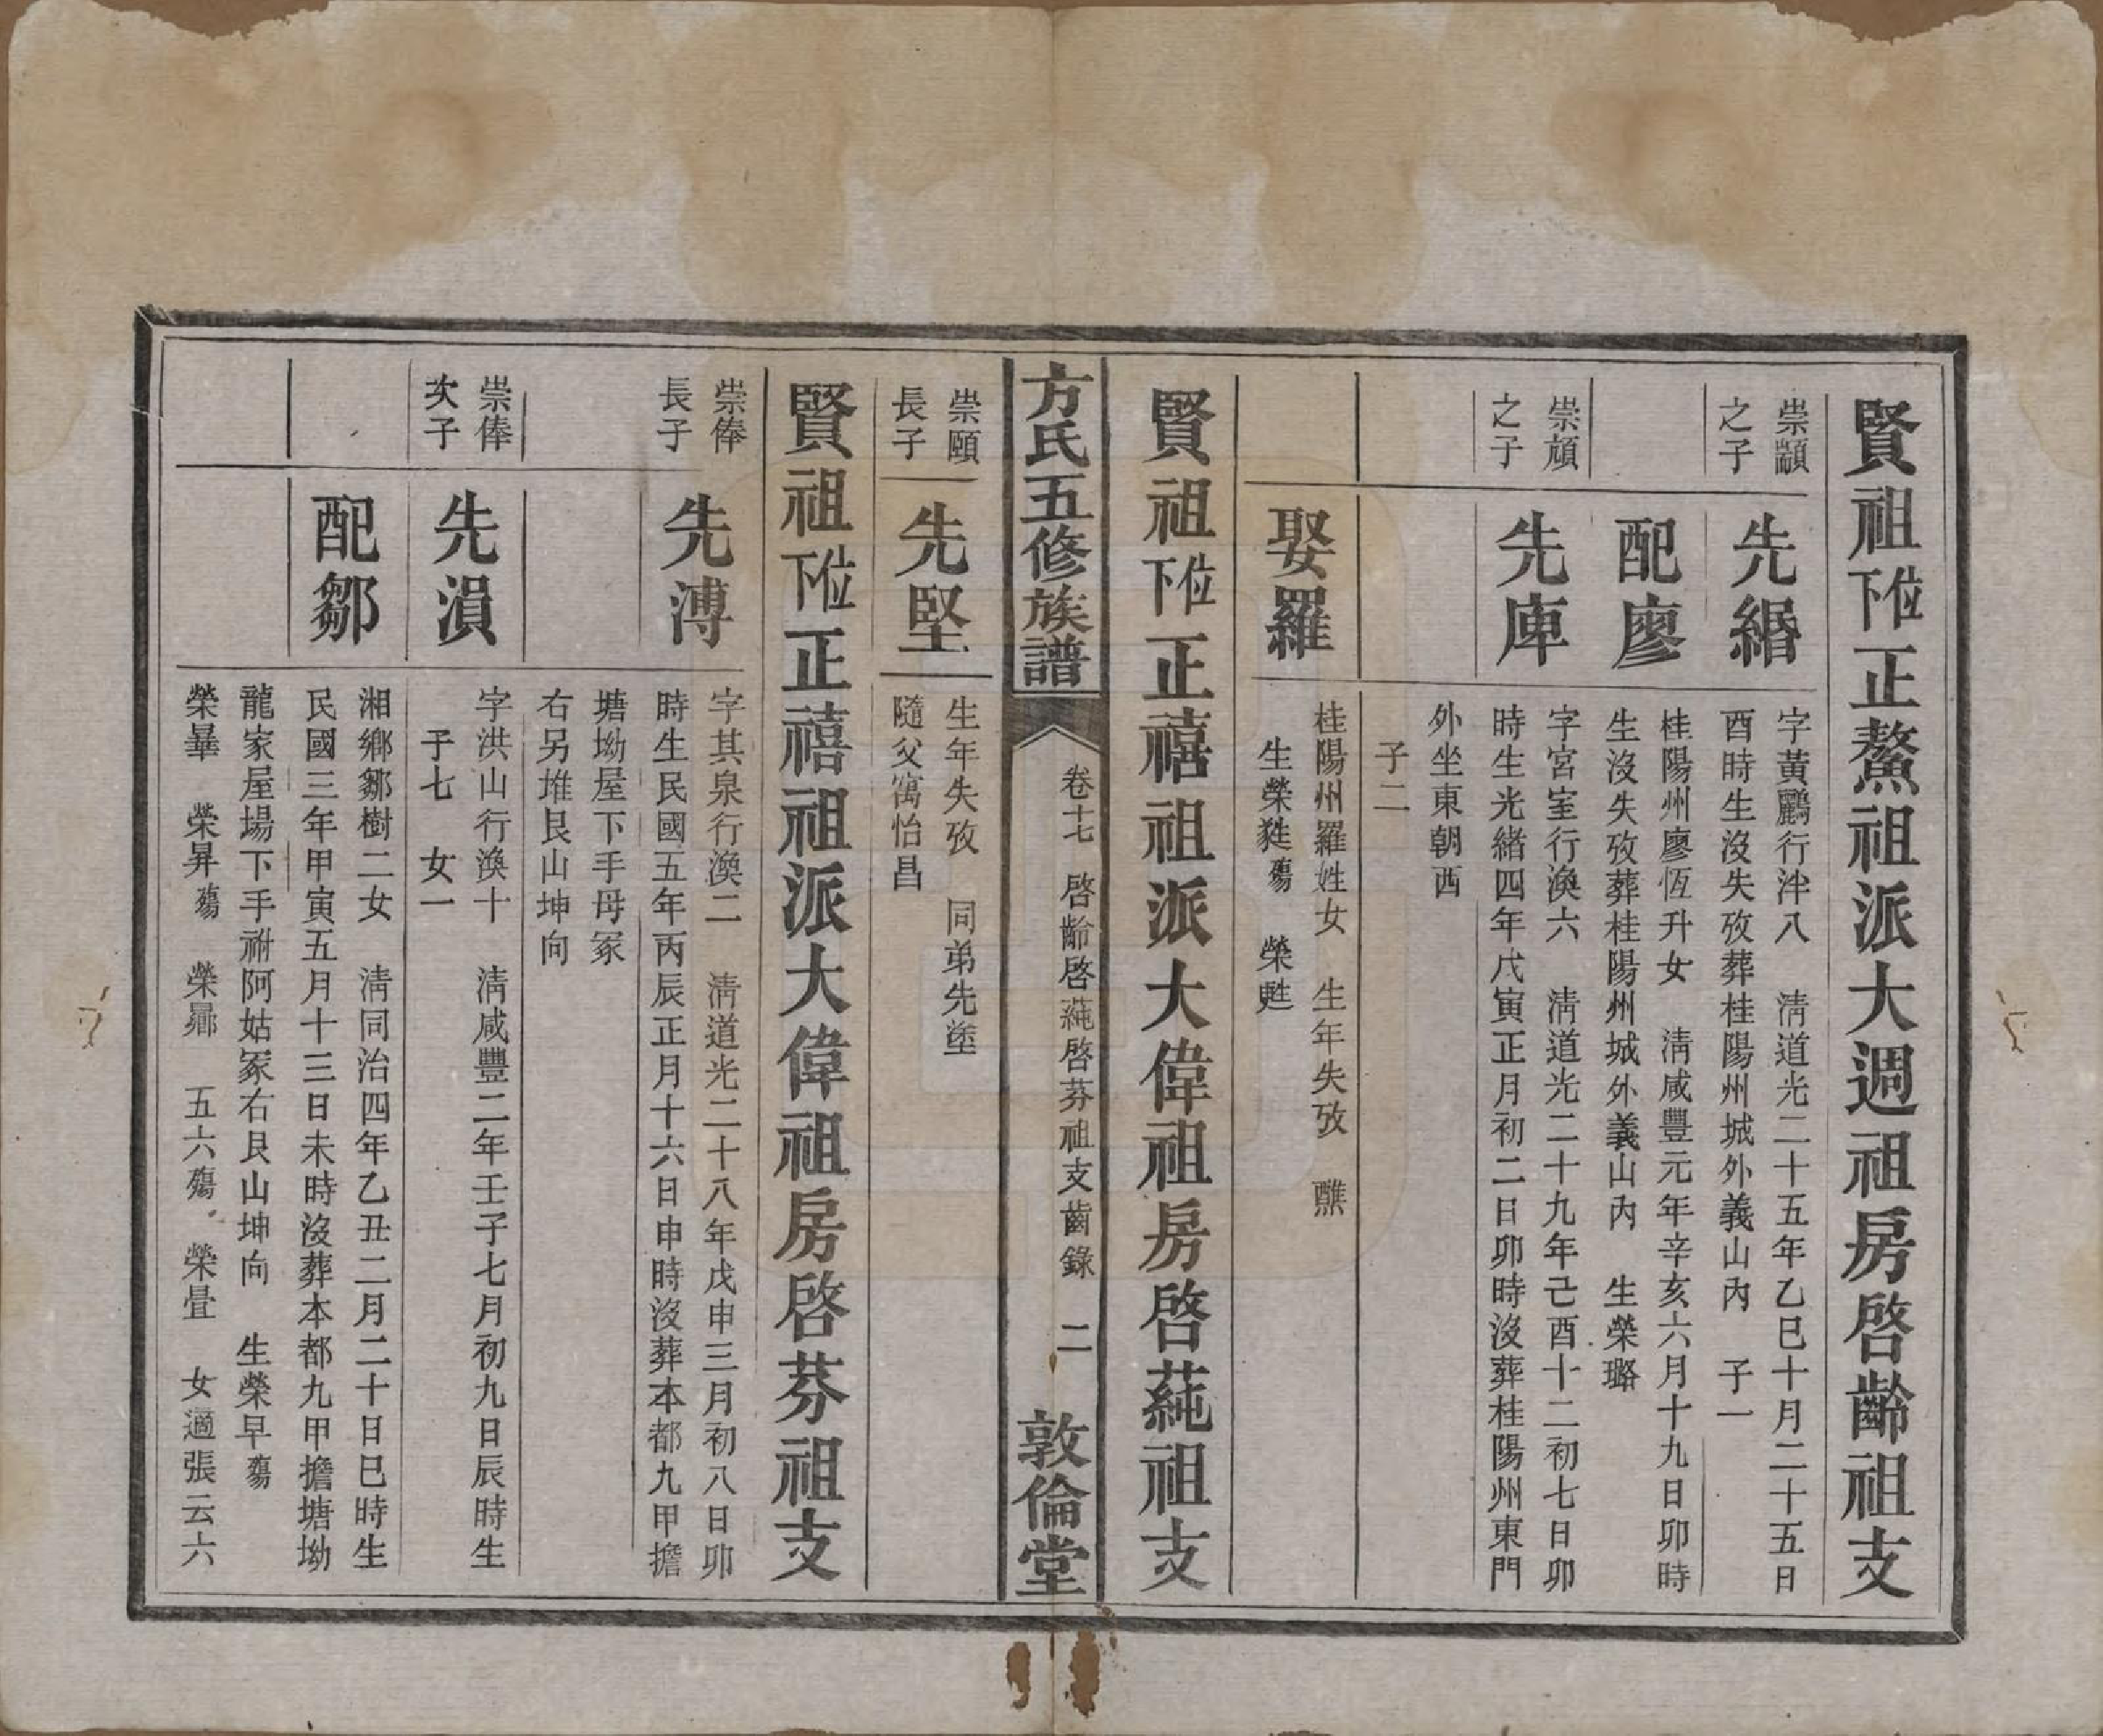 賢祖位下正鰲祖派大週祖房啓齡祖支
崇顓
之子
先緡
字黃鸝行泮八　清道光二十五年乙巳十月二十五日
酉時生沒失攷葬桂陽州城外義山內　子一
配廖
桂陽州廖恆升女　清咸豐元年辛亥六月十九日卯時
生沒失攷葬桂陽州城外義山內　生榮璐
崇頎
之子
先庫
字宮室行渙六　清道光二十九年己酉十二初七日卯
時生光緒四年戊寅正月初二日卯時沒葬桂陽州東門
外坐東朝西
子二
娶羅
桂陽州羅姓女　生年失攷　醮
生榮甤殤　榮甦
賢祖位下正禧祖派大偉祖房啓蒓祖支
方氏五修族譜
卷十七　啓齡啓蒓啓芬祖支齒錄　二
敦倫堂
崇頤
長子
先堅
生年失攷　同弟先塗
隨父寓怡昌
賢祖位下正禧祖派大偉祖房啓芬祖支
崇俸
長子
先溥
字其泉行渙二　清道光二十八年戊申三月初八日卯
時生民國五年丙辰正月十六日申時沒葬本都九甲擔
塘坳屋下手母冢
右另堆艮山坤向
崇俸
次子
先溳
字洪山行渙十　清咸豐二年壬子七月初九日辰時生
子七　女一
配鄒
湘鄉鄒樹二女　清同治四年乙丑二月二十日巳時生
民國三年甲寅五月十三日未時沒葬本都九甲擔塘坳
龍家屋場下手祔阿姑冢右艮山坤向　生榮早殤
榮暈　榮昇殤　榮　五六殤　榮量　女適張云六